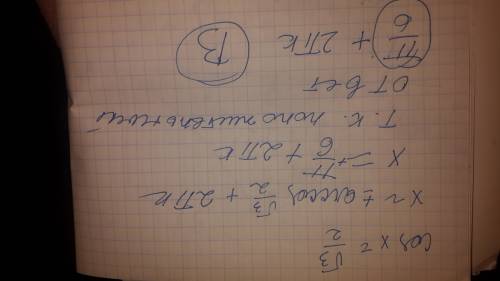 cos x = √3/2
x = ±arccos √3/2 + 2πк
x = ± π/6 + 2πк
т.к. положительный
ответ
π/6 + 2πк В